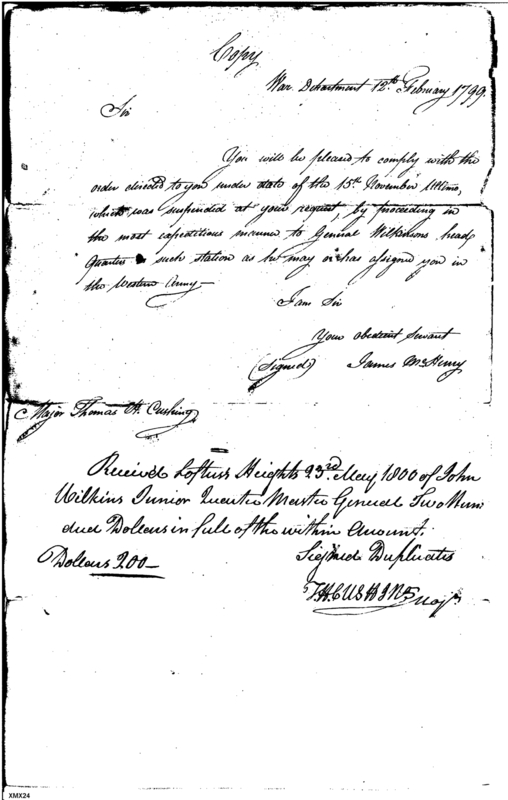 Copy
War Department 12th February 1799.
Sir
You will be pleased to comply with the
order directed to you under date of the 15th November Ultimo,
which was suspended at your request, by proceeding in
the most expeditious manner to General Wilkinsons head
Quarters such station as he may or has assigned you in
the Western Army—
I am Sir
Your obedient Servant
(Signed) James McHenry
Major Thomas H. Cushing
Received Loftuss Heights 23rd. May 1800 of John
Wilkins Junior Quarter Master General Two Hun
dred Dollars in full of the within Amount.
Dollars 200—
Signed Duplicates
T.H. CUSHING Majr
XMX24